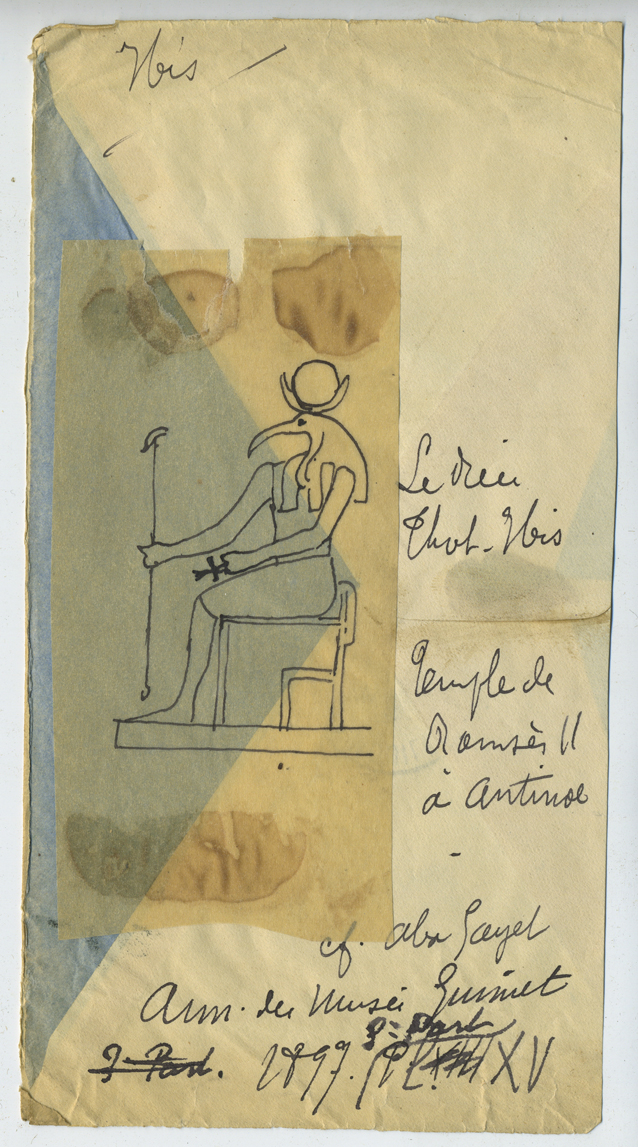 Ibis
Le dieu
Thot-Ibis
Temple de
Ramsès II
à Antinoe
-
cf. Alex Gayet
Ann. du Musée Guimet
3e Part
3e Part. 1897. Pl. XV